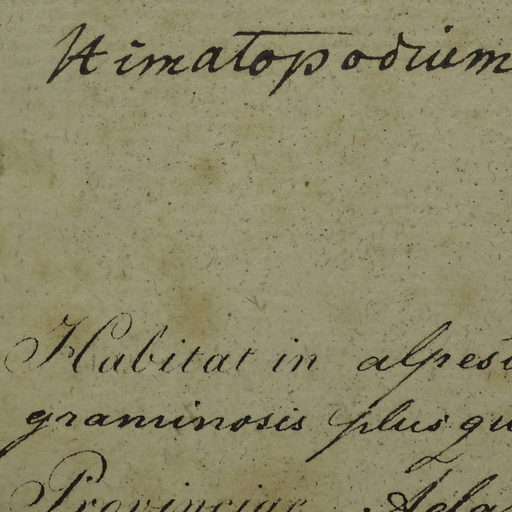 Himatopodium
Habitat in alpest
graminosis plus qu
Provinciae Ada